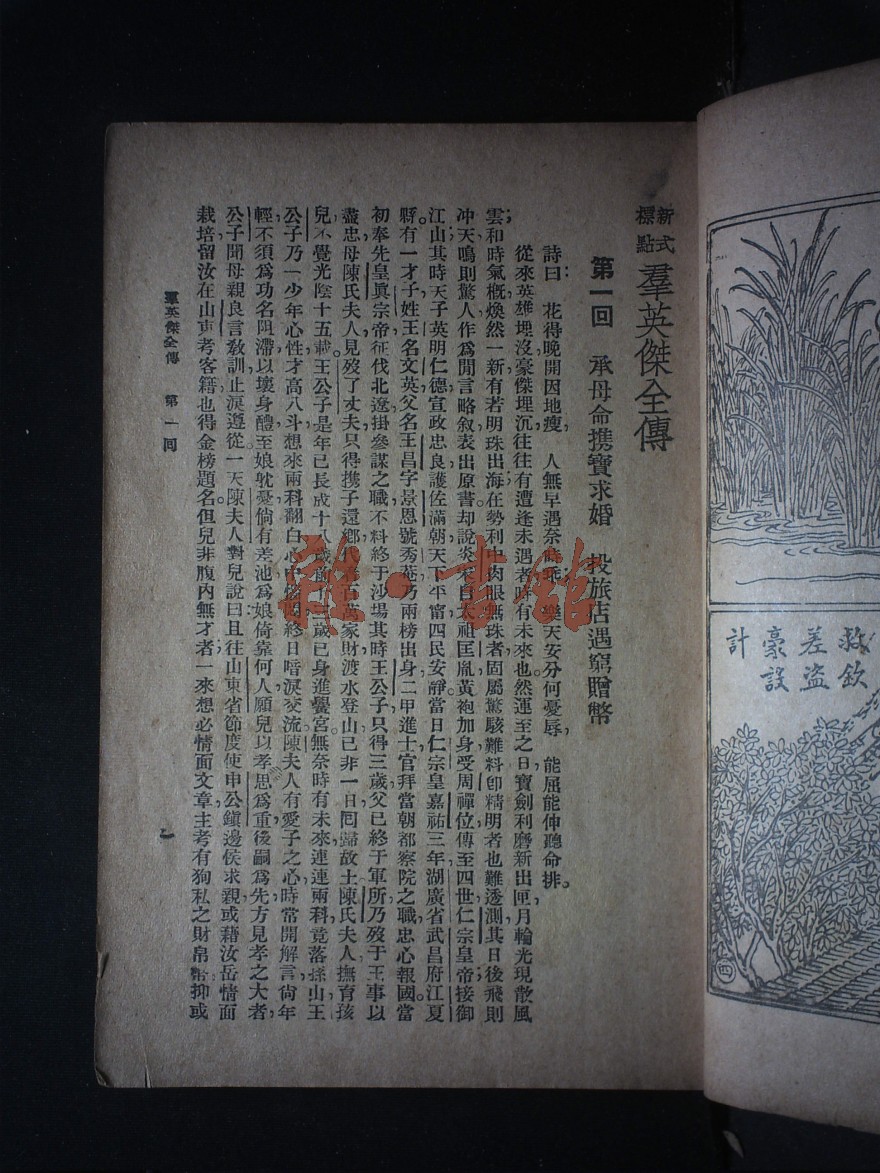 新式標點 羣英傑全傳
第一回 承母命携寶求婚 投旅店遇窮贈幣
詩曰: 花得晚開因地瘦, 人無早遇奈時乖, 樂天安分何憂辱, 能屈能伸聽命排。
從來英雄埋沒,豪傑埋沉,往往有遭逢未遇者,時有未來也,然運至之日,寶劍利磨新出匣,月輪光現散風
雲;和時氣概,煥然一新,有若明珠出海,在勢利中肉眼無珠者,固屬驚駭難料,卽精明者,也難逶測,其日後飛則
冲天,鳴則驚人,作爲閒言,略叙表出原書,却說炎宋自太祖匡胤,黃袍加身,受周禪位,傳至四世仁宗皇帝,接御
江山,其時天子英明,仁德宣政,忠良護佐滿朝,天下平富,四民安靜,當日仁宗皇嘉祐三年,湖廣省武昌府江夏
縣,有一才子,姓王名文英,父名王昌,字景恩,號秀菴,乃兩榜出身,二甲進士,官拜當朝都察院之職,忠心報國,當
初奉先皇眞宗帝征伐北遼,掛參謀之職,不料終于沙場,其時王公子只得三歲,父已終于軍所,乃歿于王事,以
盡忠,母陳氏夫人,見歿了丈夫,只得携子還鄉,百萬家財,渡水登山,已非一日,囘歸故土,陳氏夫人,撫育孩
兒,不覺光陰十五載,王公子是年已長成十八歲,前歲已身進黌宮,無奈時有未來,連連兩科,竟落孫山,王
公子乃一少年心性,才高八斗,想來兩科翻白,心中悶,終日暗淚交流,陳夫人有愛子之心,時常開解,言尙年
輕,不須爲功名阻滯,以壞身體,至娘躭憂,倘有差池,爲娘倚靠何人,願兒以孝思爲重,後嗣爲先,方見孝之大者,
公子聞母親良言敎訓,止淚遵從,一天,陳夫人對兒說曰:且往山東省節度使申公鎮邊侯求親,或藉汝岳情面
栽培,留汝在山東考客籍,也得金榜題名。但兒非腹內無才者,一來想必情面文章,主考有狗私之財帛幣,抑或
羣英傑全傳 第一回 一
救欽差盜豪設計
四
雜·書館